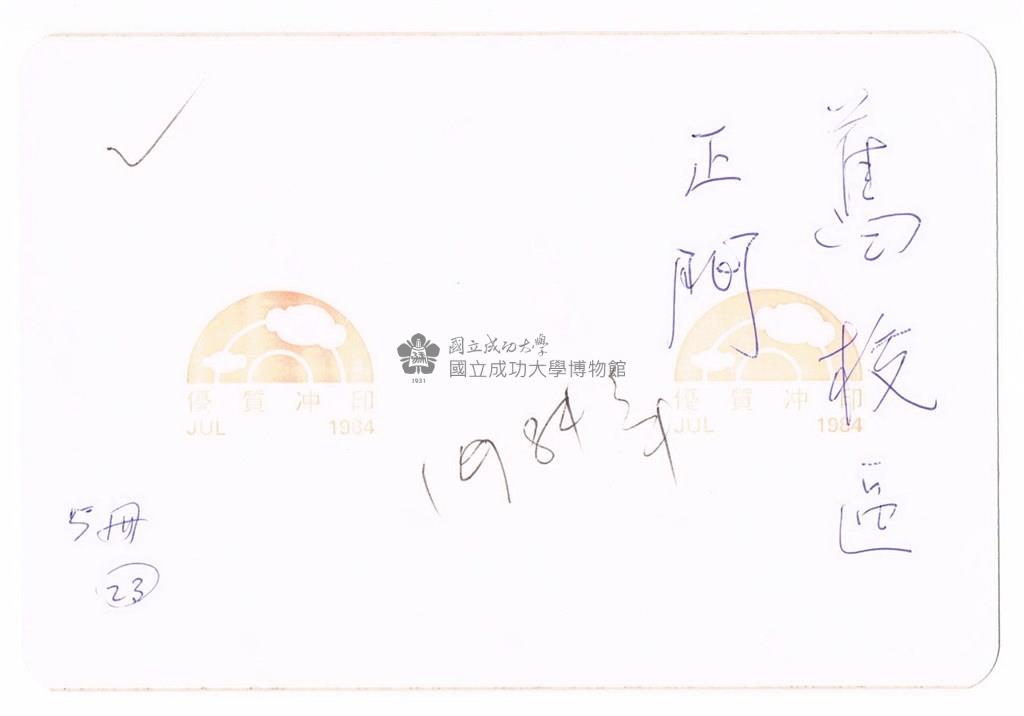 舊校區
正門
1984年
5冊
23
優質冲印
JUL 1984
優質冲印
JUL 1984
國立成功大學
國立成功大學博物館
1931